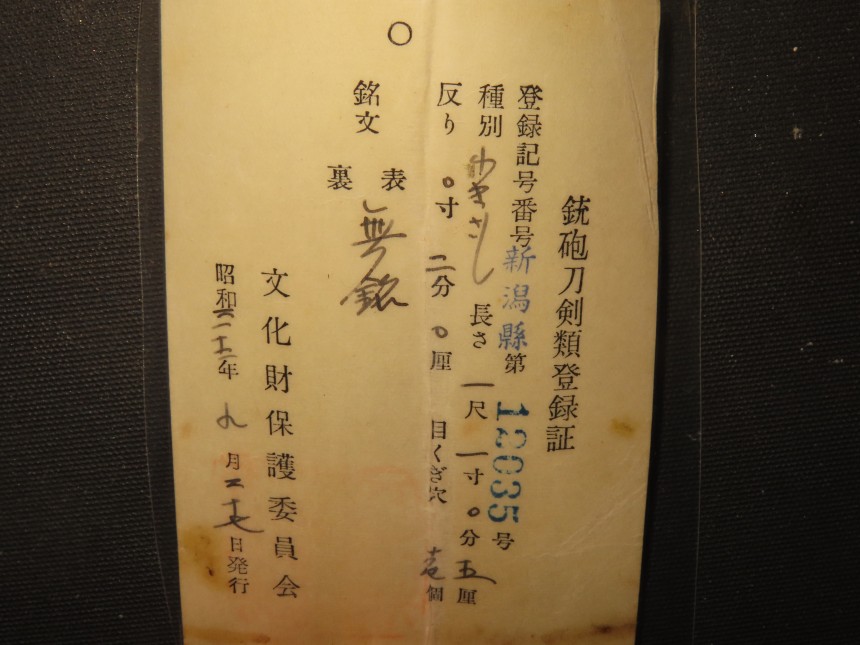 銃砲刀剣類登録証
登録記号番号 新潟縣 第 12035 号
種別 わきさし 長さ 一尺 一寸 〇分 五厘
反り 〇寸 二分 〇厘 目くぎ穴 壱個
銘文 表 無銘
裏
文化財保護委員会
昭和 年 九月 二十七日発行